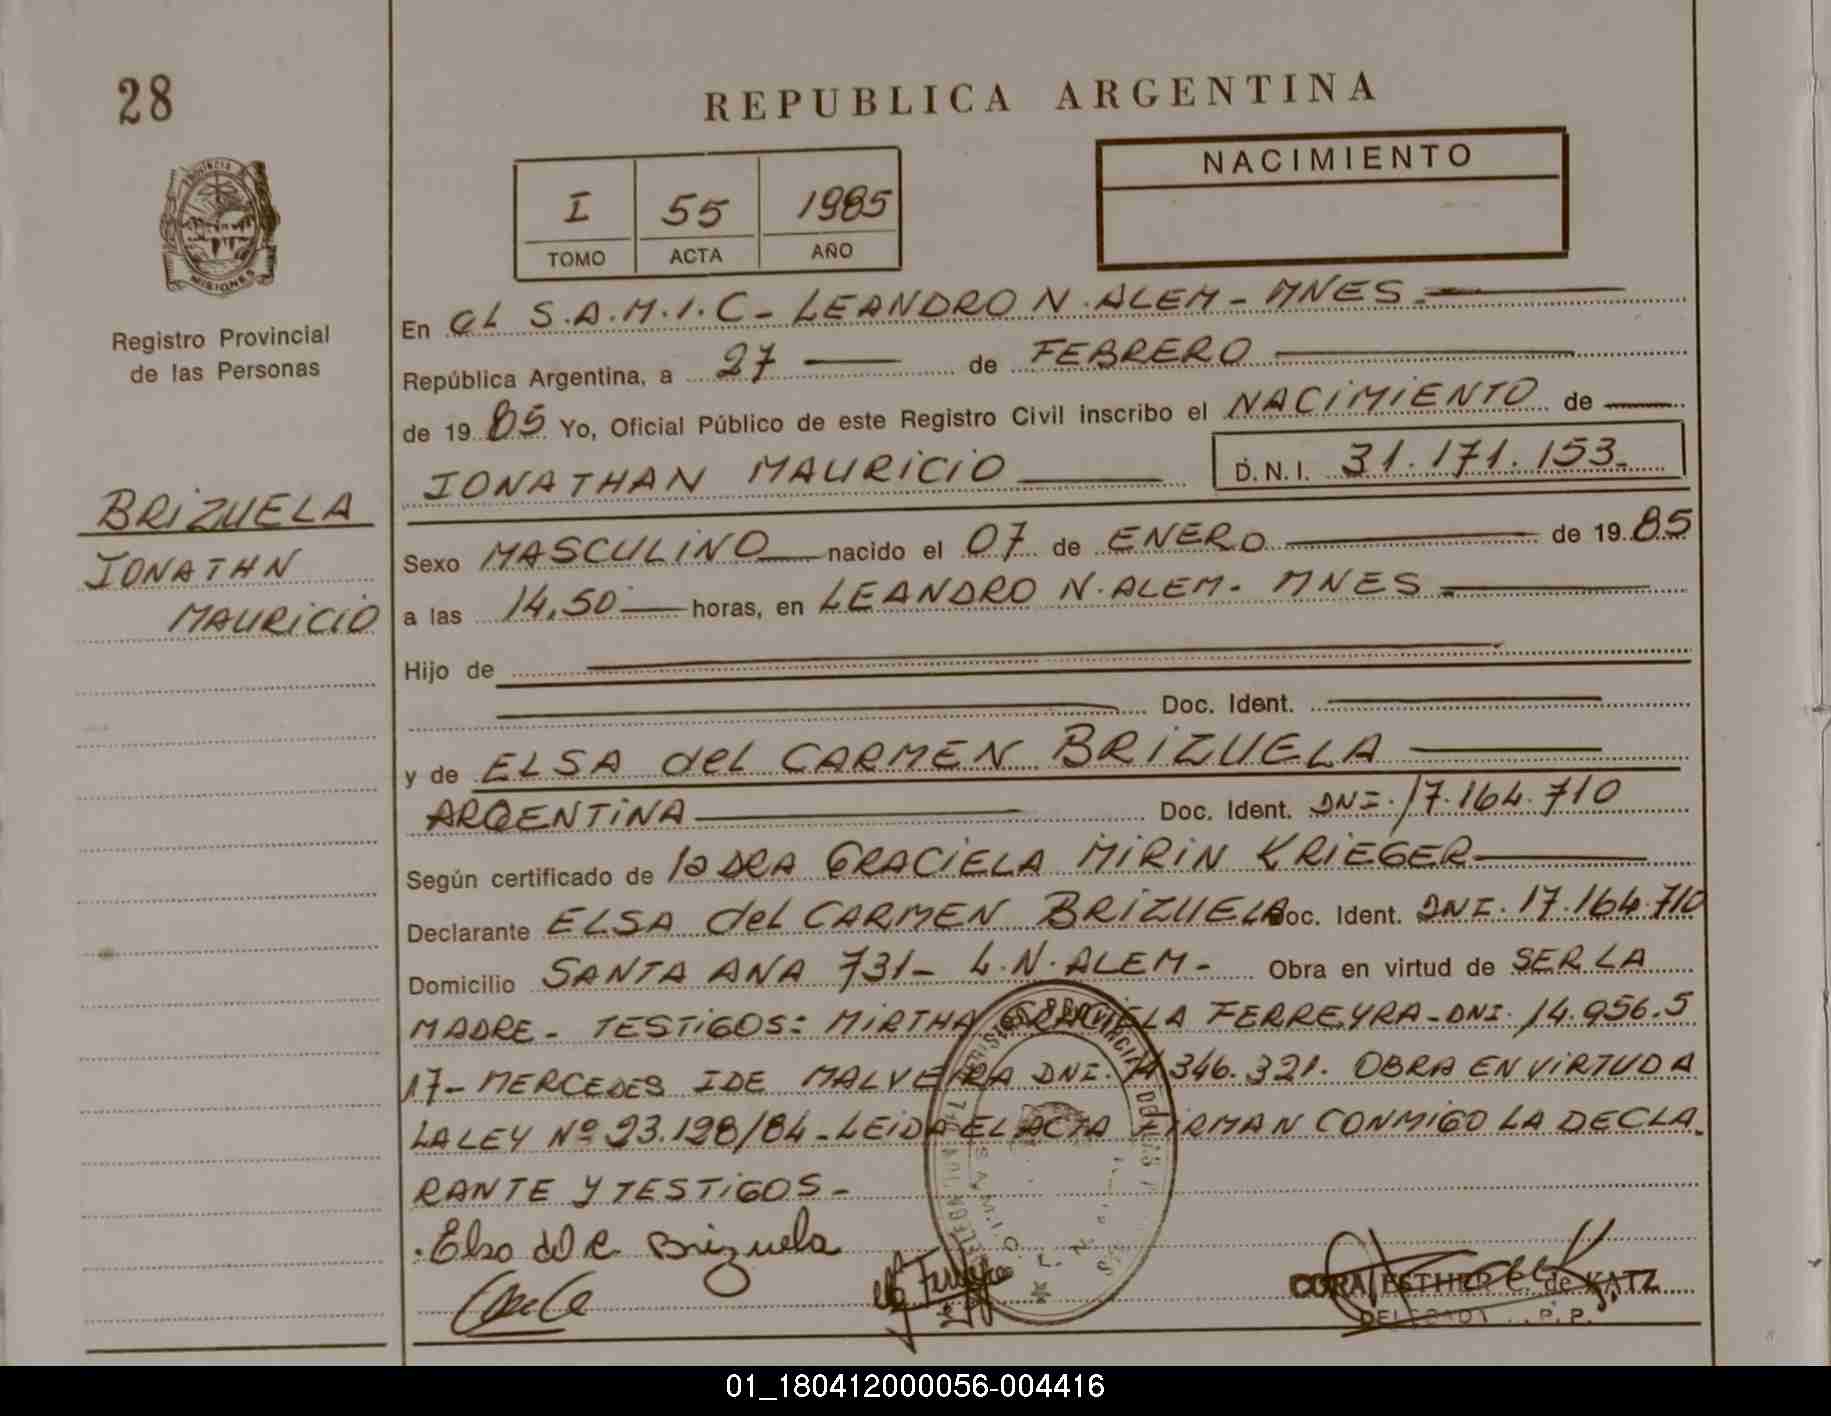 28
REPUBLICA ARGENTINA
NACIMIENTO
I 55 1985
TOMO ACTA AÑO
MISIONES
Registro Provincial
de las Personas
BRIZUELA
JONATHN
MAURICIO
En EL S.A.M.I.C- LEANDRO N. ALEM - MNES.
República Argentina, a 27 de FEBRERO
de 1985 Yo, Oficial Público de este Registro Civil inscribo el NACIMIENTO de
JONATHAN MAURICIO D.N.I. 31.171.153.
Sexo MASCULINO nacido el 07 de ENERO de 1985
a las 14,50 horas, en LEANDRO N. ALEM. MNES
Hijo de
Doc. Ident.
y de ELSA del CARMEN BRIZUELA
ARGENTINA Doc. Ident. DNI. 17.164.710
Según certificado de la DRA GRACIELA MIRIN KRIEGER
Declarante ELSA del CARMEN BRIZUELA Doc. Ident. DNI. 17.164.710
Domicilio SANTA ANA 731- L.N. ALEM- Obra en virtud de SER LA
MADRE- TESTIGOS: MIRTHA GRACIELA FERREYRA-DNI. 14.956.5
17- MERCEDES IDE MALVEIRA DNI. 346.321. OBRA EN VIRTUD A
LA LEY Nº 23.128/84-LEIDA EL ACTA FIRMAN CONMIGO LA DECLA.
RANTE Y TESTIGOS-
Elsa del C Brizuela
CORA ESTHER C. de KATZ
01_180412000056-004416